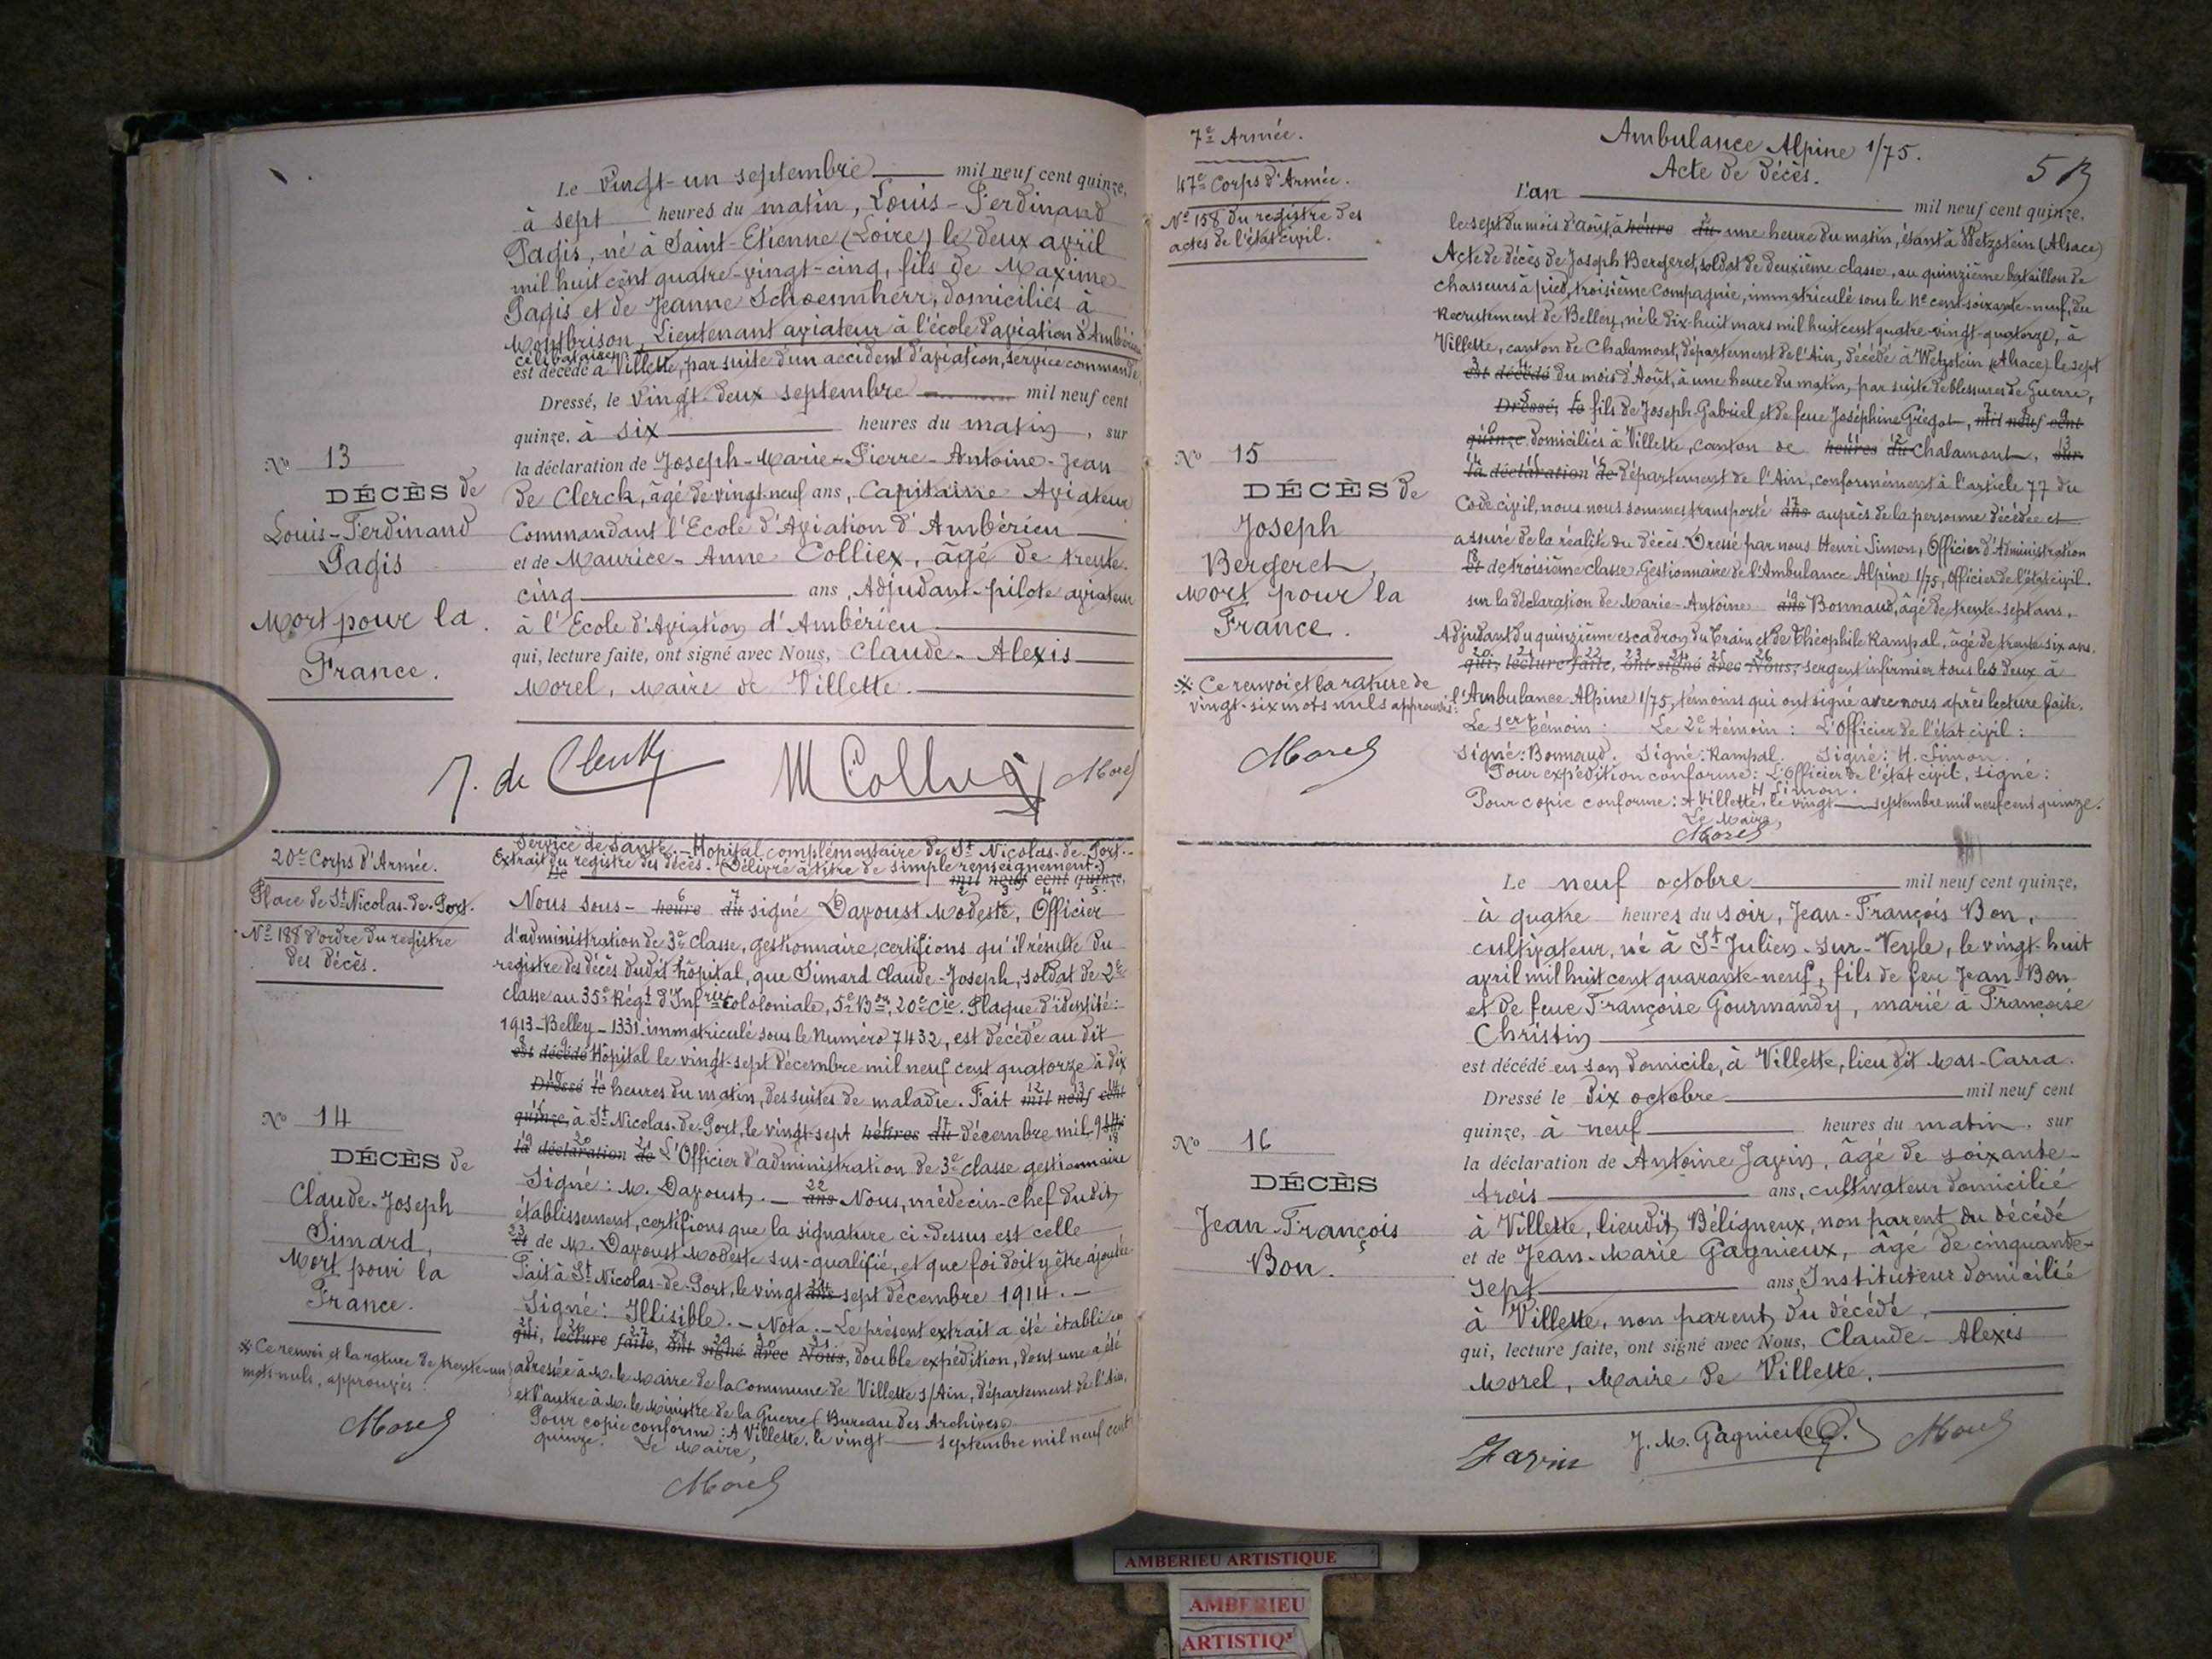 Le vingt-un septembre mil neuf cent quinze,
à sept heures du matin, Louis-Ferdinand
Pagis, né à Saint-Etienne (Loire) le deux avril
mil huit cent quatre-vingt-cinq, fils de Maxime
Pagis et de Jeanne Schoennherr, domiciliés à
Montbrison, Lieutenant aviateur à l'école d'aviation d'Ambérieu
célibataire
est décédé à Villette, par suite d'un accident d'aviation, service commandé,
Dressé, le vingt-deux septembre mil neuf cent
quinze, à six heures du matin, sur
la déclaration de Joseph-Marie-Pierre-Antoine-Jean
de Clerck, âgé de vingt-neuf ans, Capitaine Aviateur
Commandant l'Ecole d'Aviation d'Ambérieu
et de Maurice-Anne Colliex, âgé de trente-
cinq ans, Adjudant-pilote aviateur
à l'Ecole d'Aviation d'Ambérieu
qui, lecture faite, ont signé avec Nous, Claude-Alexis
Morel, Maire de Villette.
No 13
DÉCÈS de
Louis-Ferdinand
Pagis
Mort pour la
France.
J. de Clerck M Colliex Morel
20e Corps d'Armée.
Place de St Nicolas-de-Port.
No 188 d'ordre du registre
des décès.
No 14
DÉCÈS de
Claude-Joseph
Simard,
Mort pour la
France.
※ Ce renvoi et la rature de trente-un
mots nuls, approuvés :
Morel
Service de Santé.-Hopital complémentaire de St Nicolas-de-Port.-
Extrait du registre des décès. (Délivré à titre de simple renseignement.)
Le mil neuf cent quinze,
Nous sous- heure du signé Davoust Modeste, Officier
d'administration de 3e classe, gestionnaire, certifions qu'il résulte du
registre des décès dudit hôpital, que Simard Claude-Joseph, soldat de 2e
classe au 35e Régt d'Infrie Coloniale, 5e Bon, 20e Cie. Plaque d'identité :
1913-Belley-1331 immatriculé sous le Numéro 7432, est décédé au dit
est décédé Hôpital le vingt-sept décembre mil neuf cent quatorze à dix
Dressé le heures du matin, des suites de maladie. Fait mil neuf cent
quinze, à St Nicolas-de-Port, le vingt-sept heures du décembre mil 914
la déclaration de L'Officier d'administration de 3e classe gestionnaire
Signé : M. Davoust.- ans Nous, médecin-chef dudit
établissement, certifions que la signature ci-dessus est celle
et de M. Davoust Modeste sus-qualifié, et que foi doit y être ajoutée
Fait à St Nicolas-de-Port, le vingt ans sept décembre 1914.-
Signé : Illisible.-Nota.-Le présent extrait a été établi en
qui, lecture faite, ont signé avec Nous, double expédition, dont une a été
adressée à M. le Maire de la Commune de Villette s/Ain, département de l'Ain,
et l'autre à M. le Ministre de la Guerre (Bureau des Archives)
Pour copie conforme : A Villette, le vingt septembre mil neuf cent
quinze. Le Maire,
Morel
7e Armée.
47e Corps d'Armée.
No 158 du registre des
actes de l'état civil.
No 15
DÉCÈS de
Joseph
Bergeret,
Mort pour la
France.
※ Ce renvoi et la rature de
vingt-six mots nuls approuvés :
Morel
Ambulance Alpine 1/75.
Acte de décès.
L'an mil neuf cent quinze,
le sept du mois d'août, à heure du une heure du matin, étant à Wetzstein (Alsace)
Acte de décès de Joseph Bergeret, soldat de deuxième classe, au quinzième bataillon de
chasseurs à pied, troisième Compagnie, immatriculé sous le No cent-soixante-neuf, du
Recrutement de Belley, né le dix-huit mars mil huit cent quatre-vingt-quatorze, à
Villette, canton de Chalamont, département de l'Ain, décédé à Wetzstein (Alsace) le sept
est décédé du mois d'Août, à une heure du matin, par suite de blessures de Guerre,
Dressé, le fils de Joseph-Gabriel et de feue Joséphine Grégot, mil neuf cent
quinze domiciliés à Villette, canton de heures du Chalamont, sur
la déclaration de département de l'Ain, conformément à l'article 77 du
Code civil, nous nous sommes transporté ans auprès de la personne décédée et
assuré de la réalité du décès. Dressé par nous Henri Simon, Officier d'Administration
et de troisième classe, Gestionnaire de l'Ambulance Alpine 1/75, Officier de l'état civil.
sur la déclaration de Marie-Antoine ans Bonnaud, âgé de trente-sept ans,
Adjudant du quinzième escadron du Train et de Théophile Rampal, âgé de trente-six ans,
qui, lecture faite, ont signé avec Nous, sergent infirmier tous les deux à
l'Ambulance Alpine 1/75, témoins qui ont signé avec nous après lecture faite.
Le 1er témoin : Le 2e témoin : L'Officier de l'état civil :
Signé : Bonnaud. Signé : Rampal. Signé : H. Simon.
Pour expédition conforme : L'Officier de l'état civil, signé :
H Simon.
Pour copie conforme : A Villette, le vingt septembre mil neuf cent quinze.
Le Maire,
Morel
No 16
DÉCÈS
Jean-François
Bon.
Le neuf octobre mil neuf cent quinze,
à quatre heures du soir, Jean-François Bon,
cultivateur, né à St Julien-sur-Veyle, le vingt-huit
avril mil huit cent quarante-neuf, fils de feu Jean Bon
et de feue Françoise Gourmandy, marié à Françoise
Christin
est décédé en son domicile, à Villette, lieu dit Mas-Carra.
Dressé le dix octobre mil neuf cent
quinze, à neuf heures du matin, sur
la déclaration de Antoine Javin, âgé de soixante-
trois ans, cultivateur domicilié
à Villette, lieudit Béligneux, non parent du décédé
et de Jean-Marie Gagnieux, âgé de cinquante-
sept ans, Instituteur domicilié
à Villette, non parent du décédé,
qui, lecture faite, ont signé avec Nous, Claude-Alexis
Morel, Maire de Villette.
Javin J. M. Gagnieux Morel
AMBERIEU ARTISTIQUE
AMBERIEU
ARTISTIQ